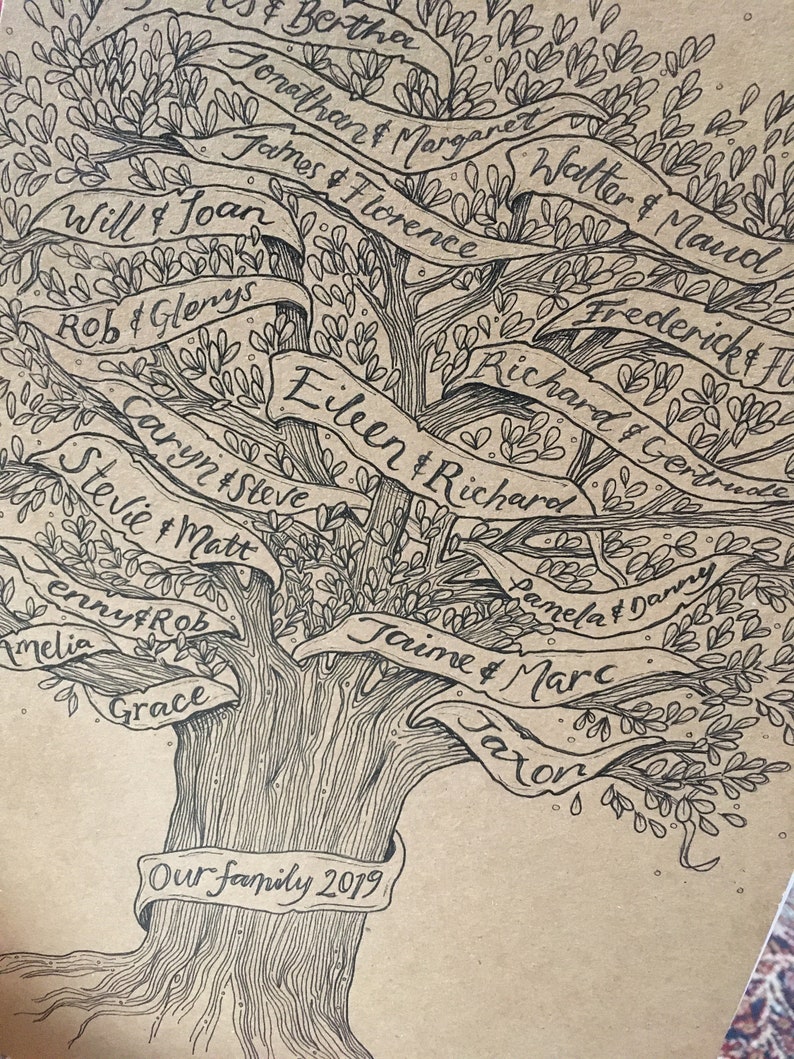 & Bertha
Jonathan & Margaret
James & Florence
Walter & Maud
Will & Joan
Rob & Glenys
Frederick &
Richard & Gertrude
Eileen & Richard
Caryn & Steve
Stevie & Matt
Pamela & Danny
Jenny & Rob
Jaime & Marc
Amelia
Grace
Jaxon
Our family 2019